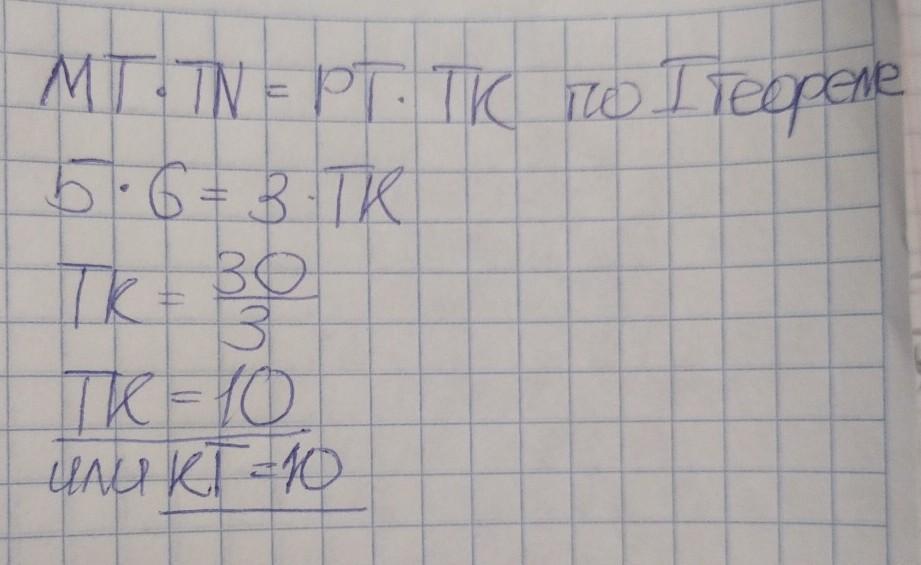 МТ · TN = PT · TK по I теореме
5 · 6 = 3 · TK
TK = 30/3
TK = 10
или KT = 10